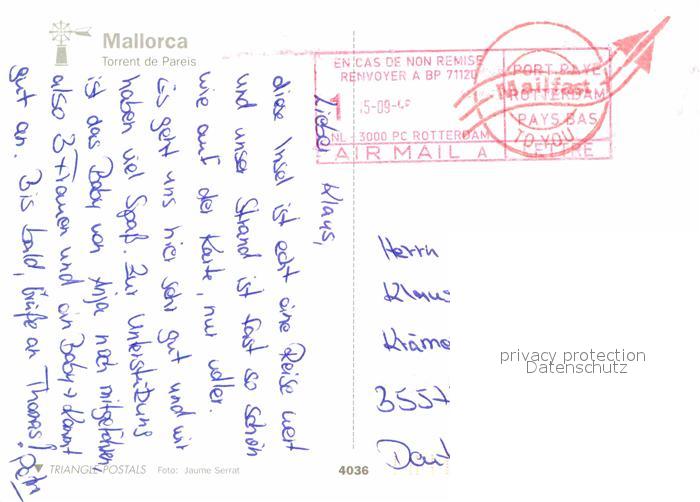 Mallorca
Torrent de Pareis
EN CAS DE NON REMISE
RENVOYER A BP 7112
5-09-
NL - 3000 PC ROTTERDAM
AIR MAIL A
PORT PAYE
ROTTERDAM
PAYS BAS
LETTRE
Mailfast
TO YOU
Lieber Klaus,
diese Insel ist echt eine Reise wert
und unser Strand ist fast so schön
wie auf der Karte, nur voller.
Es geht uns hier sehr gut und wir
haben viel Spaß. Zur Unterstützung
ist das Baby von Anja noch mitgefahren,
also 3 Frauen und ein Baby → kommt
gut an. Bis bald, Grüße an Thomas!
Herrn
Klaus
Kräme
3557
Deut
privacy protection
Datenschutz
TRIANGLE POSTALS Foto: Jaume Serrat
4036